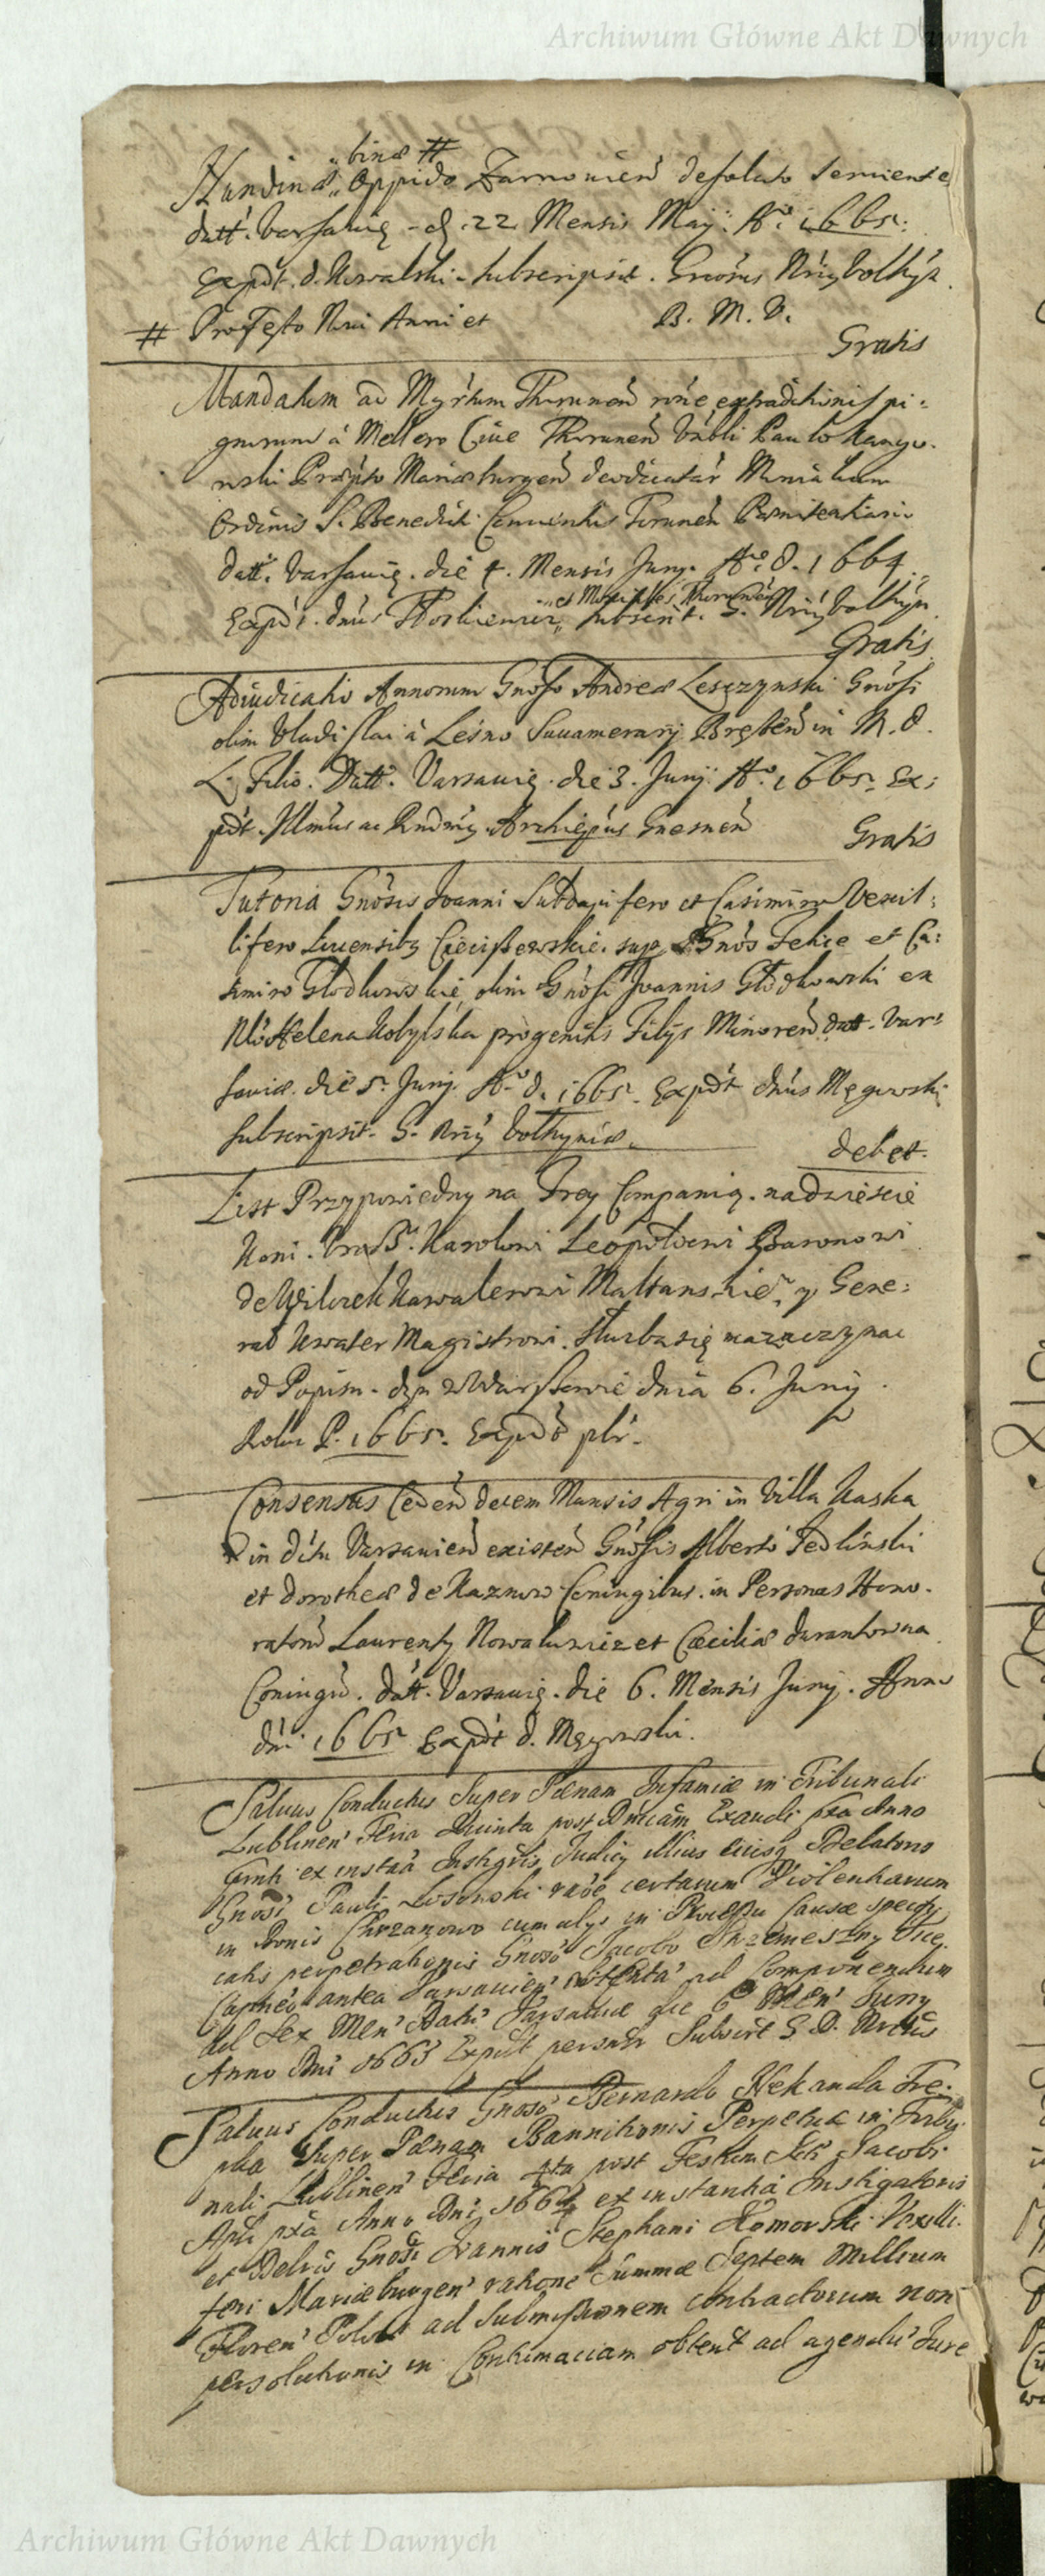 Archiwum Główne Akt Dawnych
binæ #
Nundinæ „ Oppido Zarnovień desolato serviente
datt. Varsavię. d. 22 Mensis Maÿ. Aº. 1665.
Expdt. d. Kowalski. subscripsit. Gnōsus Nrÿ Volhÿn.
# Pro Festo Novi Anni et B. M. V.
Gratis
Mandatum ad Mgrtum Thoruneń rōne extraditionis pi:
gnorum à Mellero Cive Thoruneń Vrbli Paulo
nski Præpto Mariæburgeń Monialium
Ordinis S. Benedicti Conventus Toruneń
datt. Varsavię. die 4. Mensis Juny. Aº. D. 1664.
et Moniales Thoruneń
Expdt. dnus subscrit. S. Nrÿ Volhÿn.
Gratis
Adiudicatio Annorum Gnōso Andreæ Lesczynski Gnōsi
olim Vladislai à Leśno Succamerarÿ Bresteń in M. D.
L. Filio. Datt. Varsavię. die 3. Junÿ. Aº. 1665. Ex:
pdt. Illmus ac Rndmus Archiepus Gnesneń
Gratis
Tutoria Gnōsis Joanni Subdapifero et Casimiro Vexil:
lifero Livensibq Cieciszewskie. supq Gnōs Felice et Ca:
simiro Głodkowskie, olim Gnōsi Joannis Głodkowski ex
Helena Kobylska progenitis Filÿs Minoreń datt. Var:
saviæ. die 5. Junÿ. Aº. D. 1665. Expdt dnus Męgowski
subscripsit. S. Nrÿ Volhyniæ.
debet.
List Przypowiedny na Trey Companią. na dwieście
Koni. Vrodz. Karolowi Leopoldowi Baronowi
de Wilczek Kawalerowi Maltanskie° y Gene:
rał Kwater Magistrowi. Służba się ma zaczynac
od Popisu. dan w Warszawie dnia 6. Junÿ.
Roku P. 1665. Expdt
Consensus Cedeń decem Mansis Agri in Villa Kaska
in dſtu Varsavień existeń Gnōsis Alberto Jedlinski
et Dorotheæ de Kaznow Coniugibus. in Personas Hono:
ratorū Laurentÿ Nowakowicz et Cæciliæ durantowna
Coniugū. datt. Varsavię. die 6. Mensis Junÿ. Anno
dni 1665 Expdt d. Męgowski.
Salvus Conductus Super Pœnam Infamiæ in Tribunali
Lublinen' Feria Quinta post Dnicam Exaudi pxa Anno
ex instā Instigtris Judicÿ illius eiusq Delatoris
Gnosi Pauli rāōe certarum Violentiarum
in Bonis Chrzanowo cum alys in Processu Causæ specifi
catis perpetrationis Gnoso Jacobo Vice
Capneo antea Varsavien' obtenta' ad Componendum
ad Sex Men' Datt' Varsaviæ die 6 Men' Juny
Anno Dni 1665 Expdt Subscrt S. D.
Salvus Conductus Gnoso Bernardo Hekanda Tre:
pka Super Pœnam Bannitionis Perpetuæ in Tribu
nali Lublinen' Feria 4ta post Festum Scti Jacobi
Apli pxa Anno Dni 1664 ex instantia Instigatoris
et Delris Gnosi Joannis Stephani Komorski Vexilli:
feri Mariæburgen' ratione Summæ Septem Millium
Floren' Polon' ad Submissionem contractorum non
persolutionis in Contumaciam obtent ad agendu' Jure
Archiwum Główne Akt Dawnych